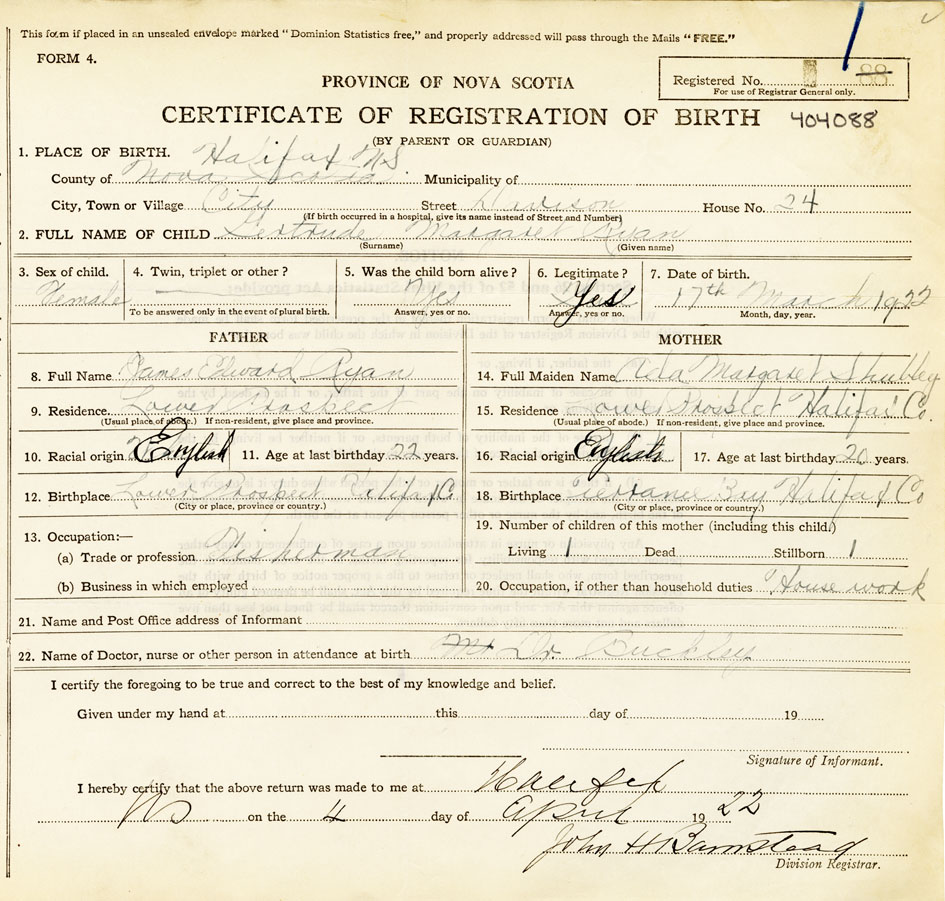 This form if placed in an unsealed envelope marked "Dominion Statistics free," and properly addressed will pass through the Mails "FREE."
FORM 4.
PROVINCE OF NOVA SCOTIA
Registered No. 88
For use of Registrar General only.
CERTIFICATE OF REGISTRATION OF BIRTH 404088
(BY PARENT OR GUARDIAN)
1. PLACE OF BIRTH. Halifax N.S
County of Nova Scotia Municipality of
City, Town or Village City Street Davison House No. 24
(If birth occurred in a hospital, give its name instead of Street and Number)
2. FULL NAME OF CHILD Gertrude Margaret Ryan
(Surname) (Given name)
3. Sex of child. 4. Twin, triplet or other? 5. Was the child born alive? 6. Legitimate? 7. Date of birth.
Female Yes Yes 17th March 1922
To be answered only in the event of plural birth. Answer, yes or no. Answer, yes or no. Month, day, year.
FATHER MOTHER
8. Full Name James Edward Ryan 14. Full Maiden Name Ada Margaret
9. Residence. Lower Prospect 15. Residence Lower Prospect Halifax Co.
(Usual place of abode.) If non-resident, give place and province. (Usual place of abode.) If non-resident, give place and province.
10. Racial origin English 11. Age at last birthday 22 years. 16. Racial origin English 17. Age at last birthday 20 years.
12. Birthplace Lower Prospect Halifax Co 18. Birthplace Terrance Bay Halifax Co
(City or place, province or country.) (City or place, province or country.)
13. Occupation:— 19. Number of children of this mother (including this child.)
(a) Trade or profession Fisherman Living 1 Dead Stillborn 1
(b) Business in which employed 20. Occupation, if other than household duties House work
21. Name and Post Office address of Informant
22. Name of Doctor, nurse or other person in attendance at birth Dr. Buckley
I certify the foregoing to be true and correct to the best of my knowledge and belief.
Given under my hand at this day of 19
Signature of Informant.
I hereby certify that the above return was made to me at Halifax
NS on the 4 day of April 19 22
John H Barnstead
Division Registrar.